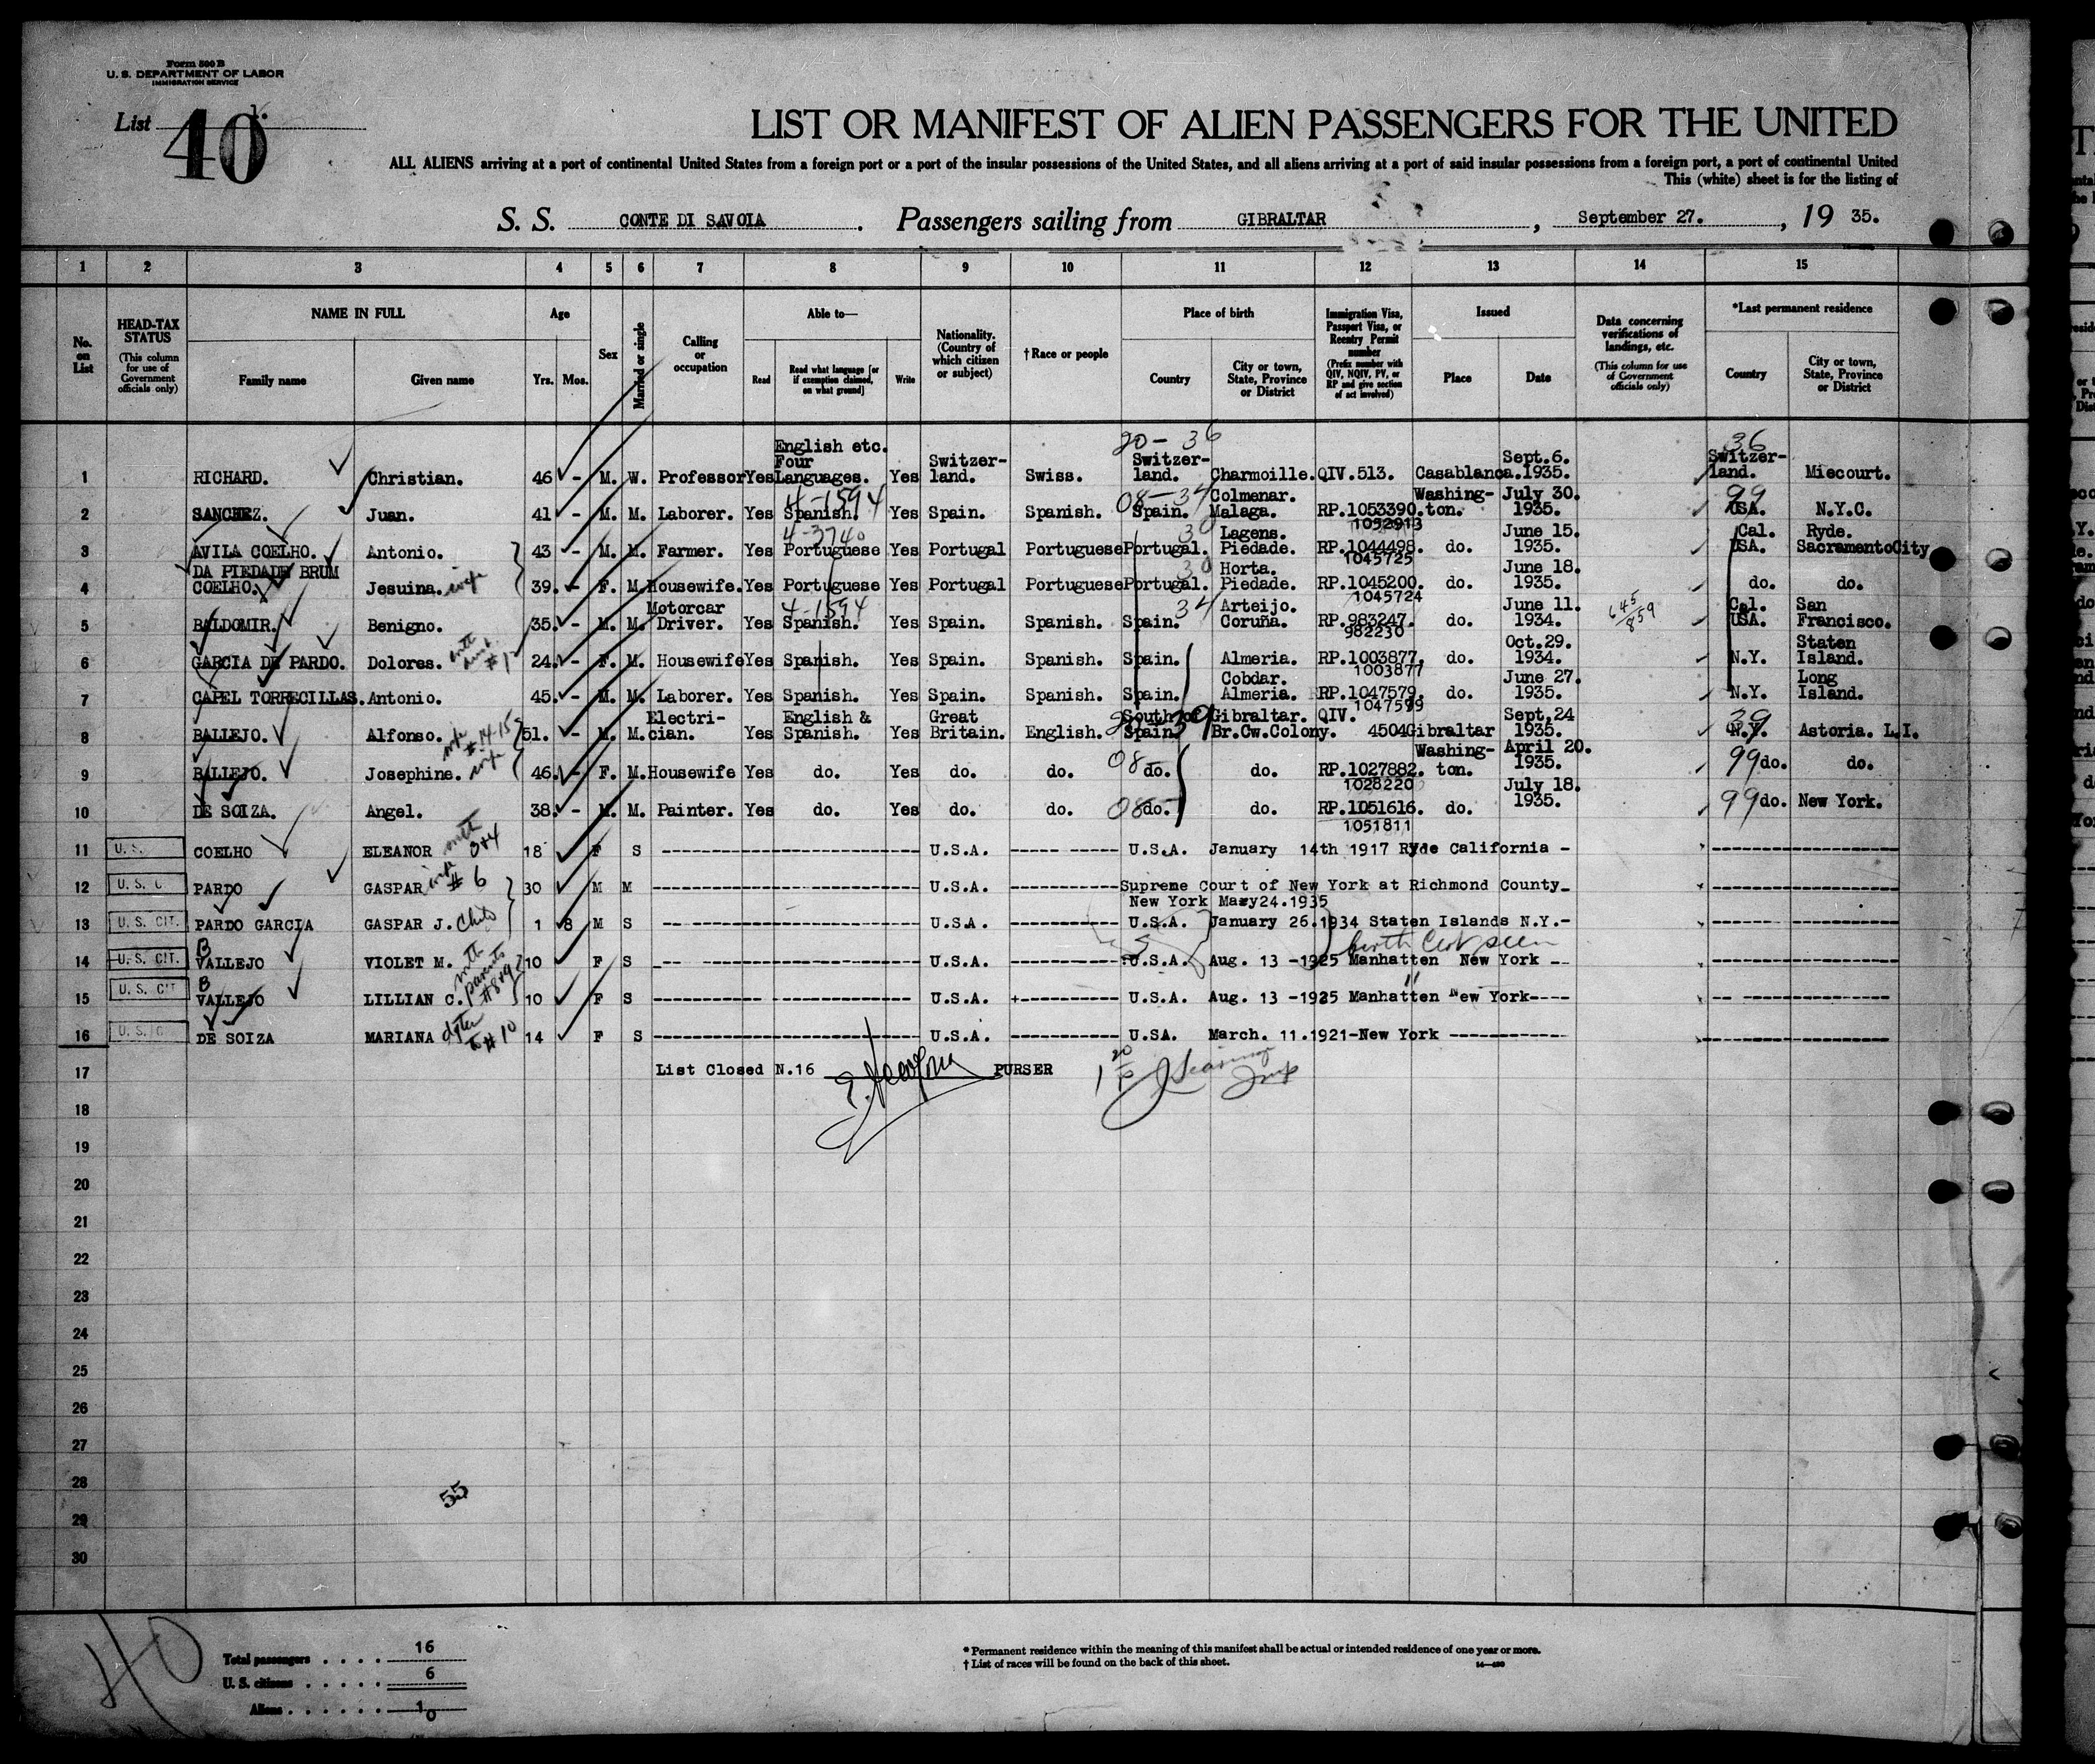 Form 500 B
U. S. DEPARTMENT OF LABOR
IMMIGRATION SERVICE
List 40
LIST OR MANIFEST OF ALIEN PASSENGERS FOR THE UNITED
ALL ALIENS arriving at a port of continental United States from a foreign port or a port of the insular possessions of the United States, and all aliens arriving at a port of said insular possessions from a foreign port, a port of continental United
This (white) sheet is for the listing of
S. S. CONTE DI SAVOIA. Passengers sailing from GIBRALTAR, September 27., 19 35.
1 2 3 4 5 6 7 8 9 10 11 12 13 14 15
No. on List
HEAD-TAX STATUS (This column for use of Government officials only)
NAME IN FULL
Family name Given name
Age Yrs. Mos.
Sex
Married or single
Calling or occupation
Able to—
Read Read what language [or if exemption claimed, on what ground] Write
Nationality. (Country of which citizen or subject)
†Race or people
Place of birth
Country City or town, State, Province or District
Immigration Visa, Passport Visa, or Reentry Permit number (Prefix number with QIV, NQIV, PV, or RP and give section of act involved)
Issued
Place Date
Data concerning verifications of landings, etc. (This column for use of Government officials only)
*Last permanent residence
Country City or town, State, Province or District
20-36 36
1 RICHARD. Christian. 46 - M. W. Professor Yes English etc. Four Languages. Yes Switzer-land. Swiss. Switzer-land. Charmoille. QIV.513. Casablanca. Sept.6. 1935. Switzer-land. Miecourt.
4-1594 08-34 99
2 SANCHEZ. Juan. 41 - M. M. Laborer. Yes Spanish. Yes Spain. Spanish. Spain. Colmenar. Malaga. RP.1053390. 1052913 Washing-ton. July 30. 1935. USA. N.Y.C.
4-3740 30
3 AVILA COELHO. Antonio. 43 - M. M. Farmer. Yes Portuguese Yes Portugal Portuguese Portugal. Lagens. Piedade. RP.1044498. 1045725 do. June 15. 1935. Cal. USA. Ryde. SacramentoCity
30
4 DA PIEDADE BRUM COELHO. Jesuina. wife 39. - F. M. Housewife. Yes Portuguese Yes Portugal Portuguese Portugal. Horta. Piedade. RP.1045200. 1045724 do. June 18. 1935. do. do.
4-1594 34
5 BALDOMIR. Benigno. 35. - M. M. Motorcar Driver. Yes Spanish. Yes Spain. Spanish. Spain. Arteijo. Coruña. RP.983247. 982230 do. June 11. 1934. Cal. USA. San Francisco.
6 GARCIA DE PARDO. Dolores. 24. - F. M. Housewife Yes Spanish. Yes Spain. Spanish. Spain. Almeria. RP.1003877. 1003877 do. Oct.29. 1934. N.Y. Staten Island.
7 CAPEL TORRECILLAS. Antonio. 45. - M. M. Laborer. Yes Spanish. Yes Spain. Spanish. Spain. Cobdar. Almeria. RP.1047579. 1047599 do. June 27. 1935. N.Y. Long Island.
8 BALLEJO. Alfonso. wife #14-15 51. - M. M. Electri-cian. Yes English & Spanish. Yes Great Britain. English. South of Spain. Gibraltar. Br.Cw.Colony. QIV. 4504 Gibraltar Sept.24 1935. 39 N.Y. Astoria. L.I.
9 BALLEJO. Josephine. wife 46. - F. M. Housewife Yes do. Yes do. do. 08 do. do. RP.1027882. 1028220 Washing-ton. April 20. 1935. 99 do. do.
10 DE SOIZA. Angel. 38. - M. M. Painter. Yes do. Yes do. do. 08 do. do. RP.1051616. 1051811 do. July 18. 1935. 99 do. New York.
11 U. S. COELHO ELEANOR with 3+4 18 F S U.S.A. U.S.A. January 14th 1917 Ryde California -
12 U. S. C PARDO GASPAR # 6 30 M M U.S.A. Supreme Court of New York at Richmond County New York May24.1935
13 U. S. CIT. PARDO GARCIA GASPAR J. Child 1 8 M S U.S.A. U.S.A. January 26.1934 Staten Islands N.Y.-
birth Cert seen
14 U. S. CIT. B VALLEJO VIOLET M. with parents #8+9 10 F S U.S.A. U.S.A. Aug. 13 -1925 Manhatten New York --
15 U. S. CIT B VALLEJO LILLIAN C. 10 F S U.S.A. U.S.A. Aug. 13 -1925 Manhatten New York----
16 U. S. C DE SOIZA MARIANA dgter to #10 14 F S U.S.A. U.SA. March. 11.1921-New York
17 List Closed N.16 PURSER
18
19
20
21
22
23
24
25
26
27
28
29
30
55
40
Total passengers . . . . 16
U. S. citizens . . . . . 6
Aliens . . . . . . 10
* Permanent residence within the meaning of this manifest shall be actual or intended residence of one year or more.
† List of races will be found on the back of this sheet.